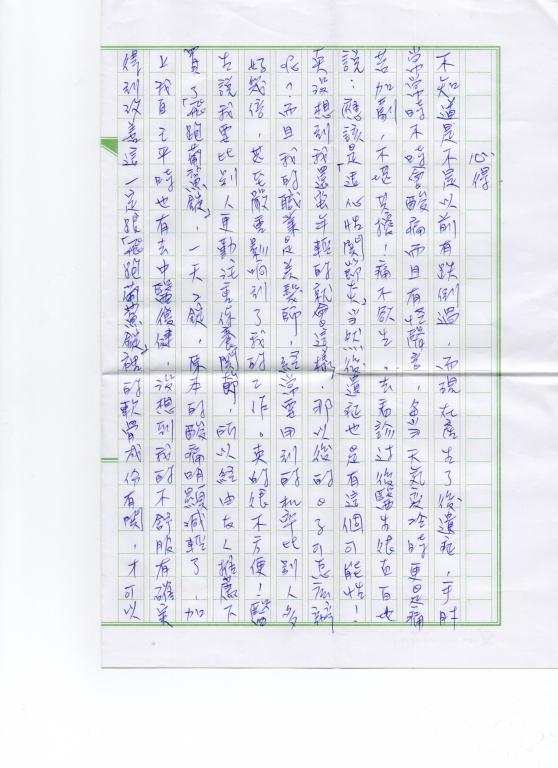 心得
不知道是不是以前有跌倒過，而現在產生了後遺症，手肘
常常時不時會酸痛而且有怪聲音，每當天氣變冷時更是痛
苦加劇，不堪其擾！痛不欲生。去看診过後醫生娘直白地
說：應該是「退化性関節炎」当然後遺症也是有這個可能性！
真沒想到我還蛮年輕的就會這樣，那以後的日子可怎広辦
呢？而且我的職業是美髮師，経常要用到的机率比別人多
好幾倍，甚至嚴重影响到了我的工作。真的很不方便！醫
生說我要比別人更勤注重保養関節，所以経由友人推薦下
買了「飛跑葡萄錠」，一天2錠，原本的酸痛明顯减輕了，加
上我自己平時也有去中醫復健，沒想到我的不舒服有確実
得到改善這一定跟「飛跑葡萄錠」裡的軟骨成份有関，才可以